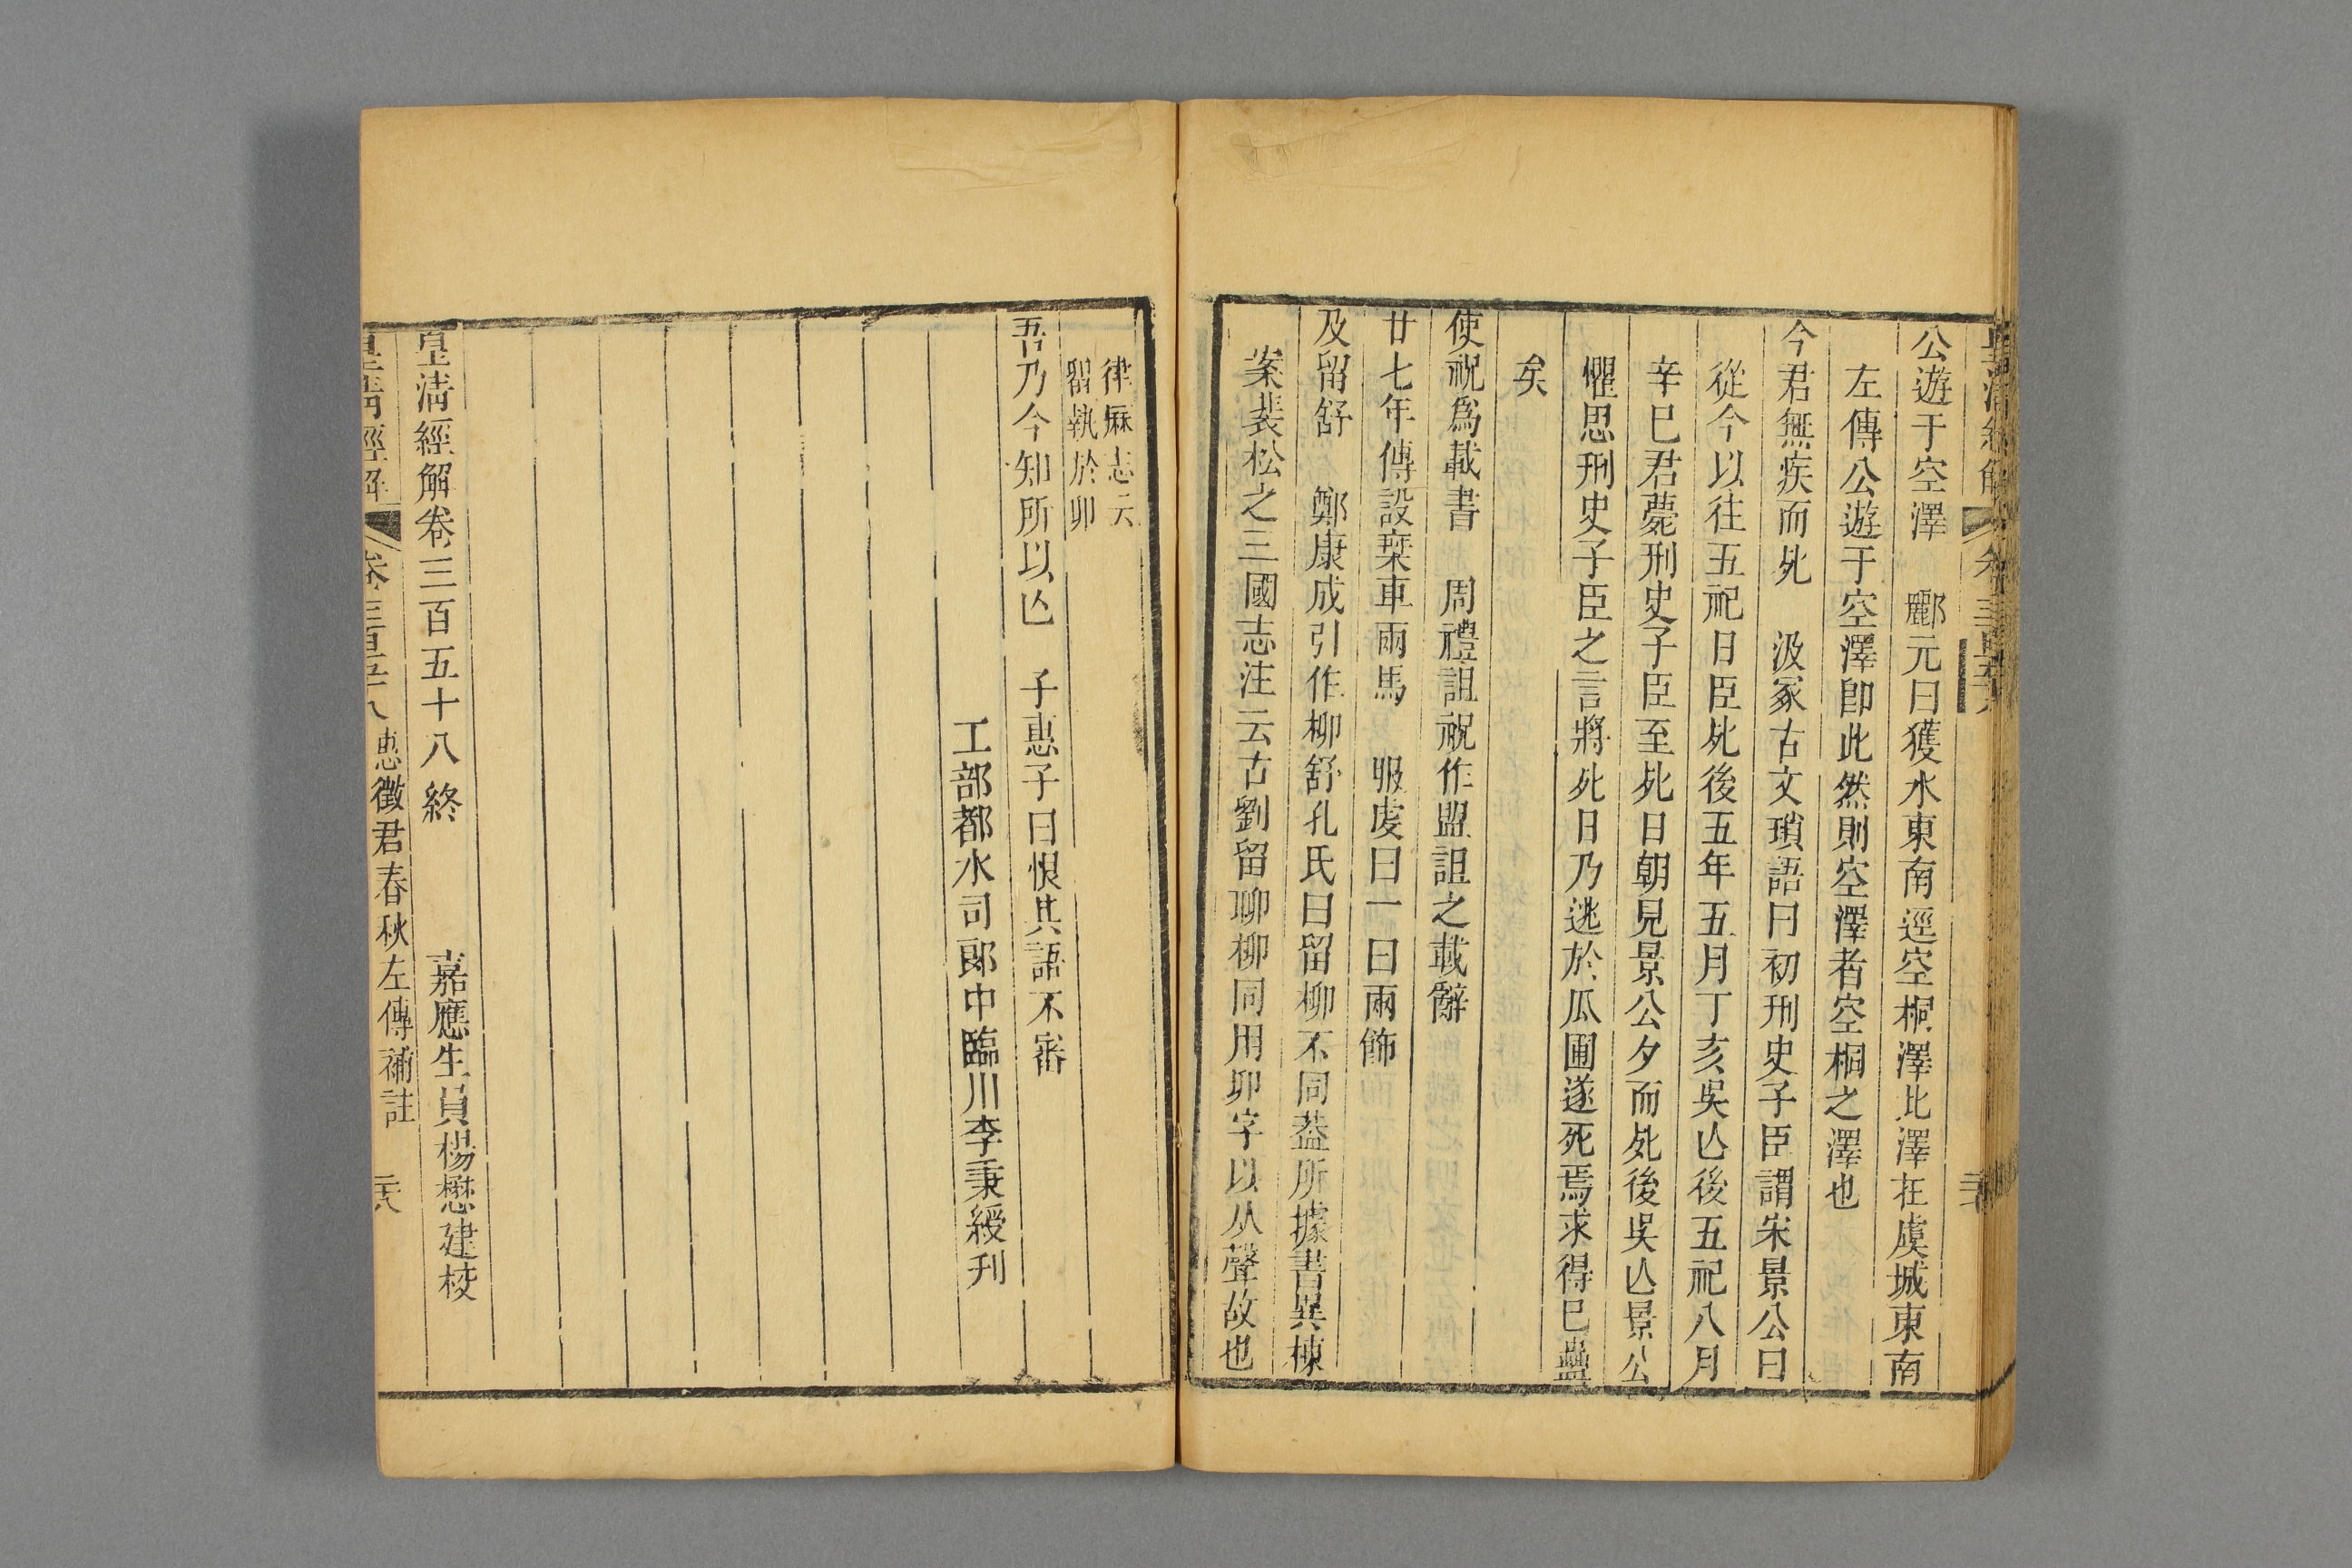 公遊于空澤　酈元曰獲水東南逕空桐澤北澤在虞城東南
左傳公遊于空澤卽此然則空澤者空桐之澤也
今君無疾而死　汲冢古文瑣語曰初刑史子臣謂宋景公曰
從今以往五祀日臣死後五年五月丁亥吳亾後五祀八月
辛巳君薨刑史子臣至死日朝見景公夕而死後吳亾景公
懼思刑史子臣之言將死日乃逃於瓜圃遂死焉求得已蠱
矣
使祝爲載書　周禮詛祝作盟詛之載辭
廿七年傳設椉車兩馬　服虔曰一曰兩飾
及留舒　鄭康成引作柳舒孔氏曰留柳不同葢所據書異棟
案裴松之三國志注云古劉留聊柳同用丣字以从聲故也
律厤志云
畱孰於丣
吾乃今知所以亾　子惠子曰恨其語不審
工部都水司郎中臨川李秉綬刊
皇淸經解卷三百五十八終　嘉應生員楊懋建校
皇淸經解　卷三百五十八　惠徵君春秋左傳補註　二六